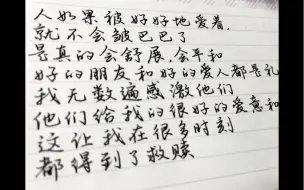 人如果被好好地爱着.
就不会皱巴巴了
是真的会舒展.会平和
好的朋友和好的爱人都是礼
我无数遍感激他们
他们给我的很好的爱意和
这让我在很多时刻
都得到了救赎